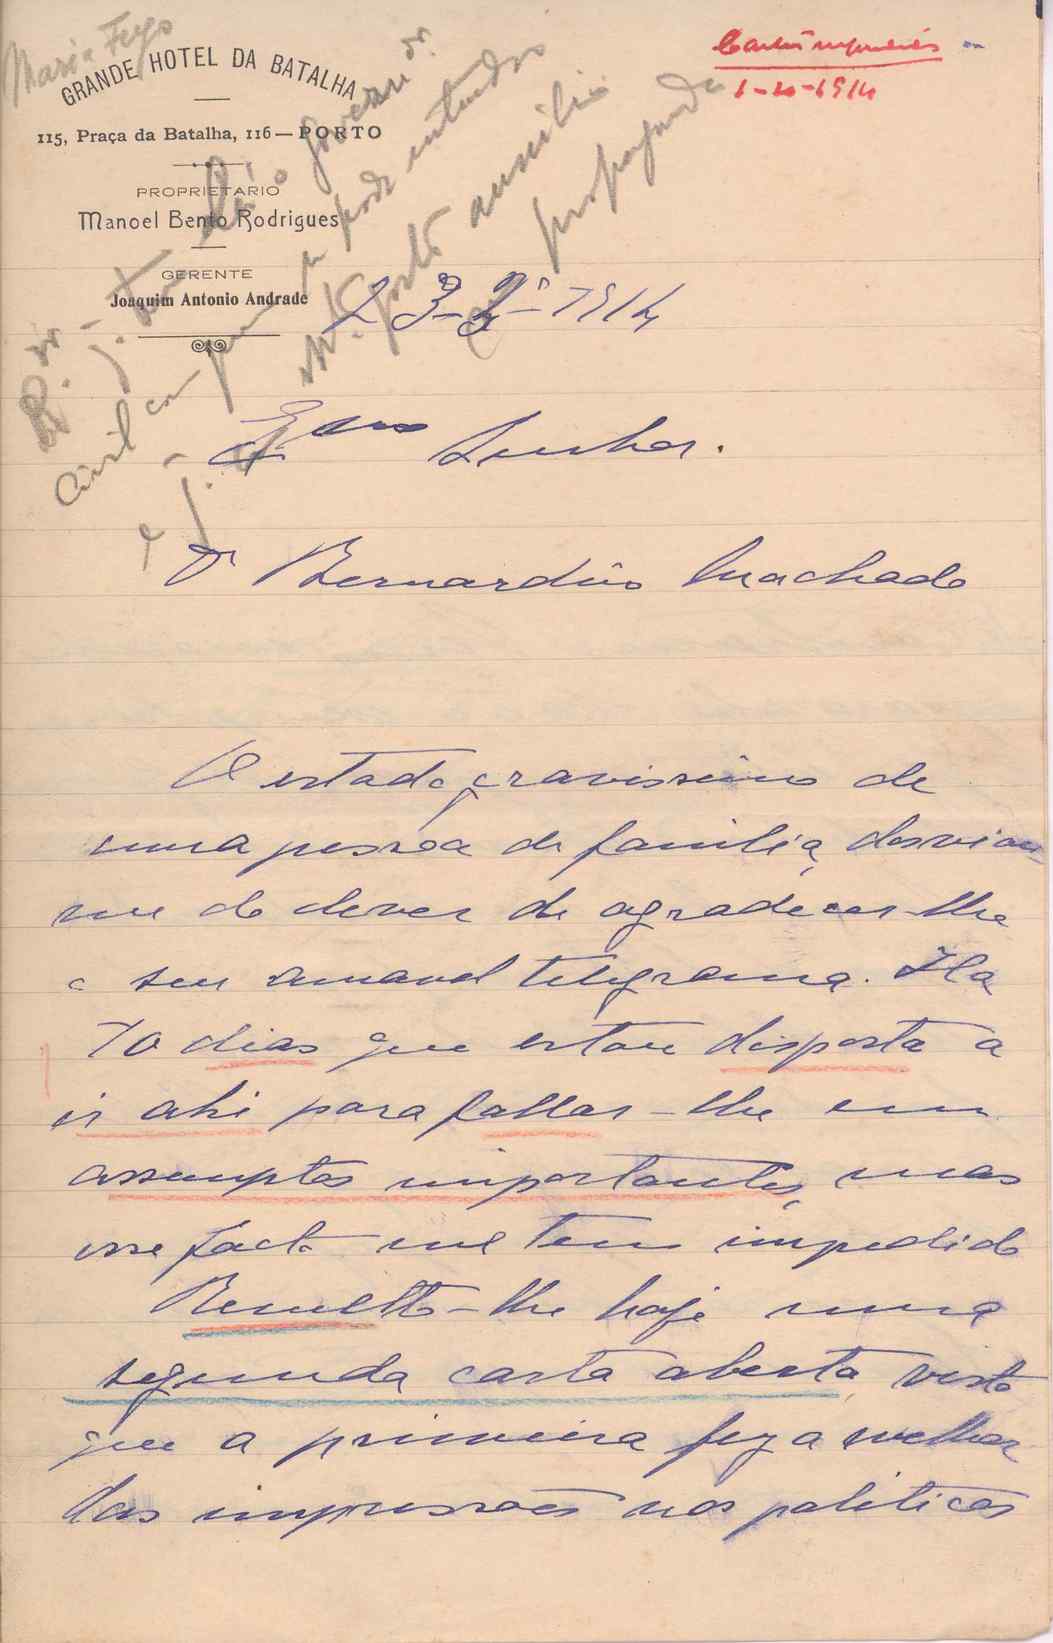 Maria Feyo
GRANDE HOTEL DA BATALHA
115, Praça da Batalha, 116 — PORTO
PROPRIETARIO
Manoel Bento Rodrigues
GERENTE
Joaquim Antonio Andrade
1914
R.
governador
civil pode
auxilio
propaganda
23-2º-1914
Exmo Senhor.
Dr Bernardino Machado
O estado gravissimo de
uma pessoa de familia, desviou
me do dever de agradecer-lhe
o seu amavel telegrama. Ha
10 dias que estou disposta a
ir ahi para fallar-lhe em
assumptos importantes, mas
esse facto me tem impedido
Remetto-lhe hoje uma
segunda carta aberta, visto
que a primeira fez a melhor
das impressões nos politicos